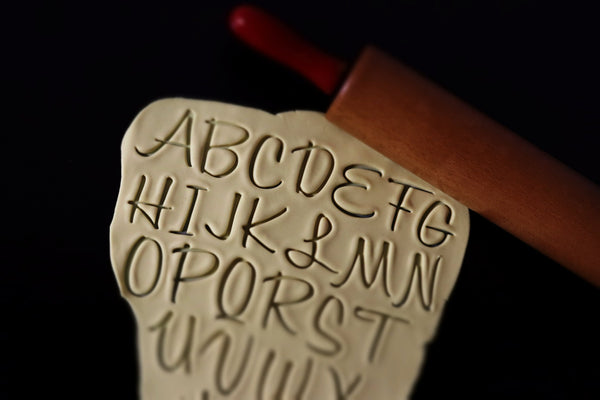 ABCDEFG
HIJKLMN
OPQRST
UVWX